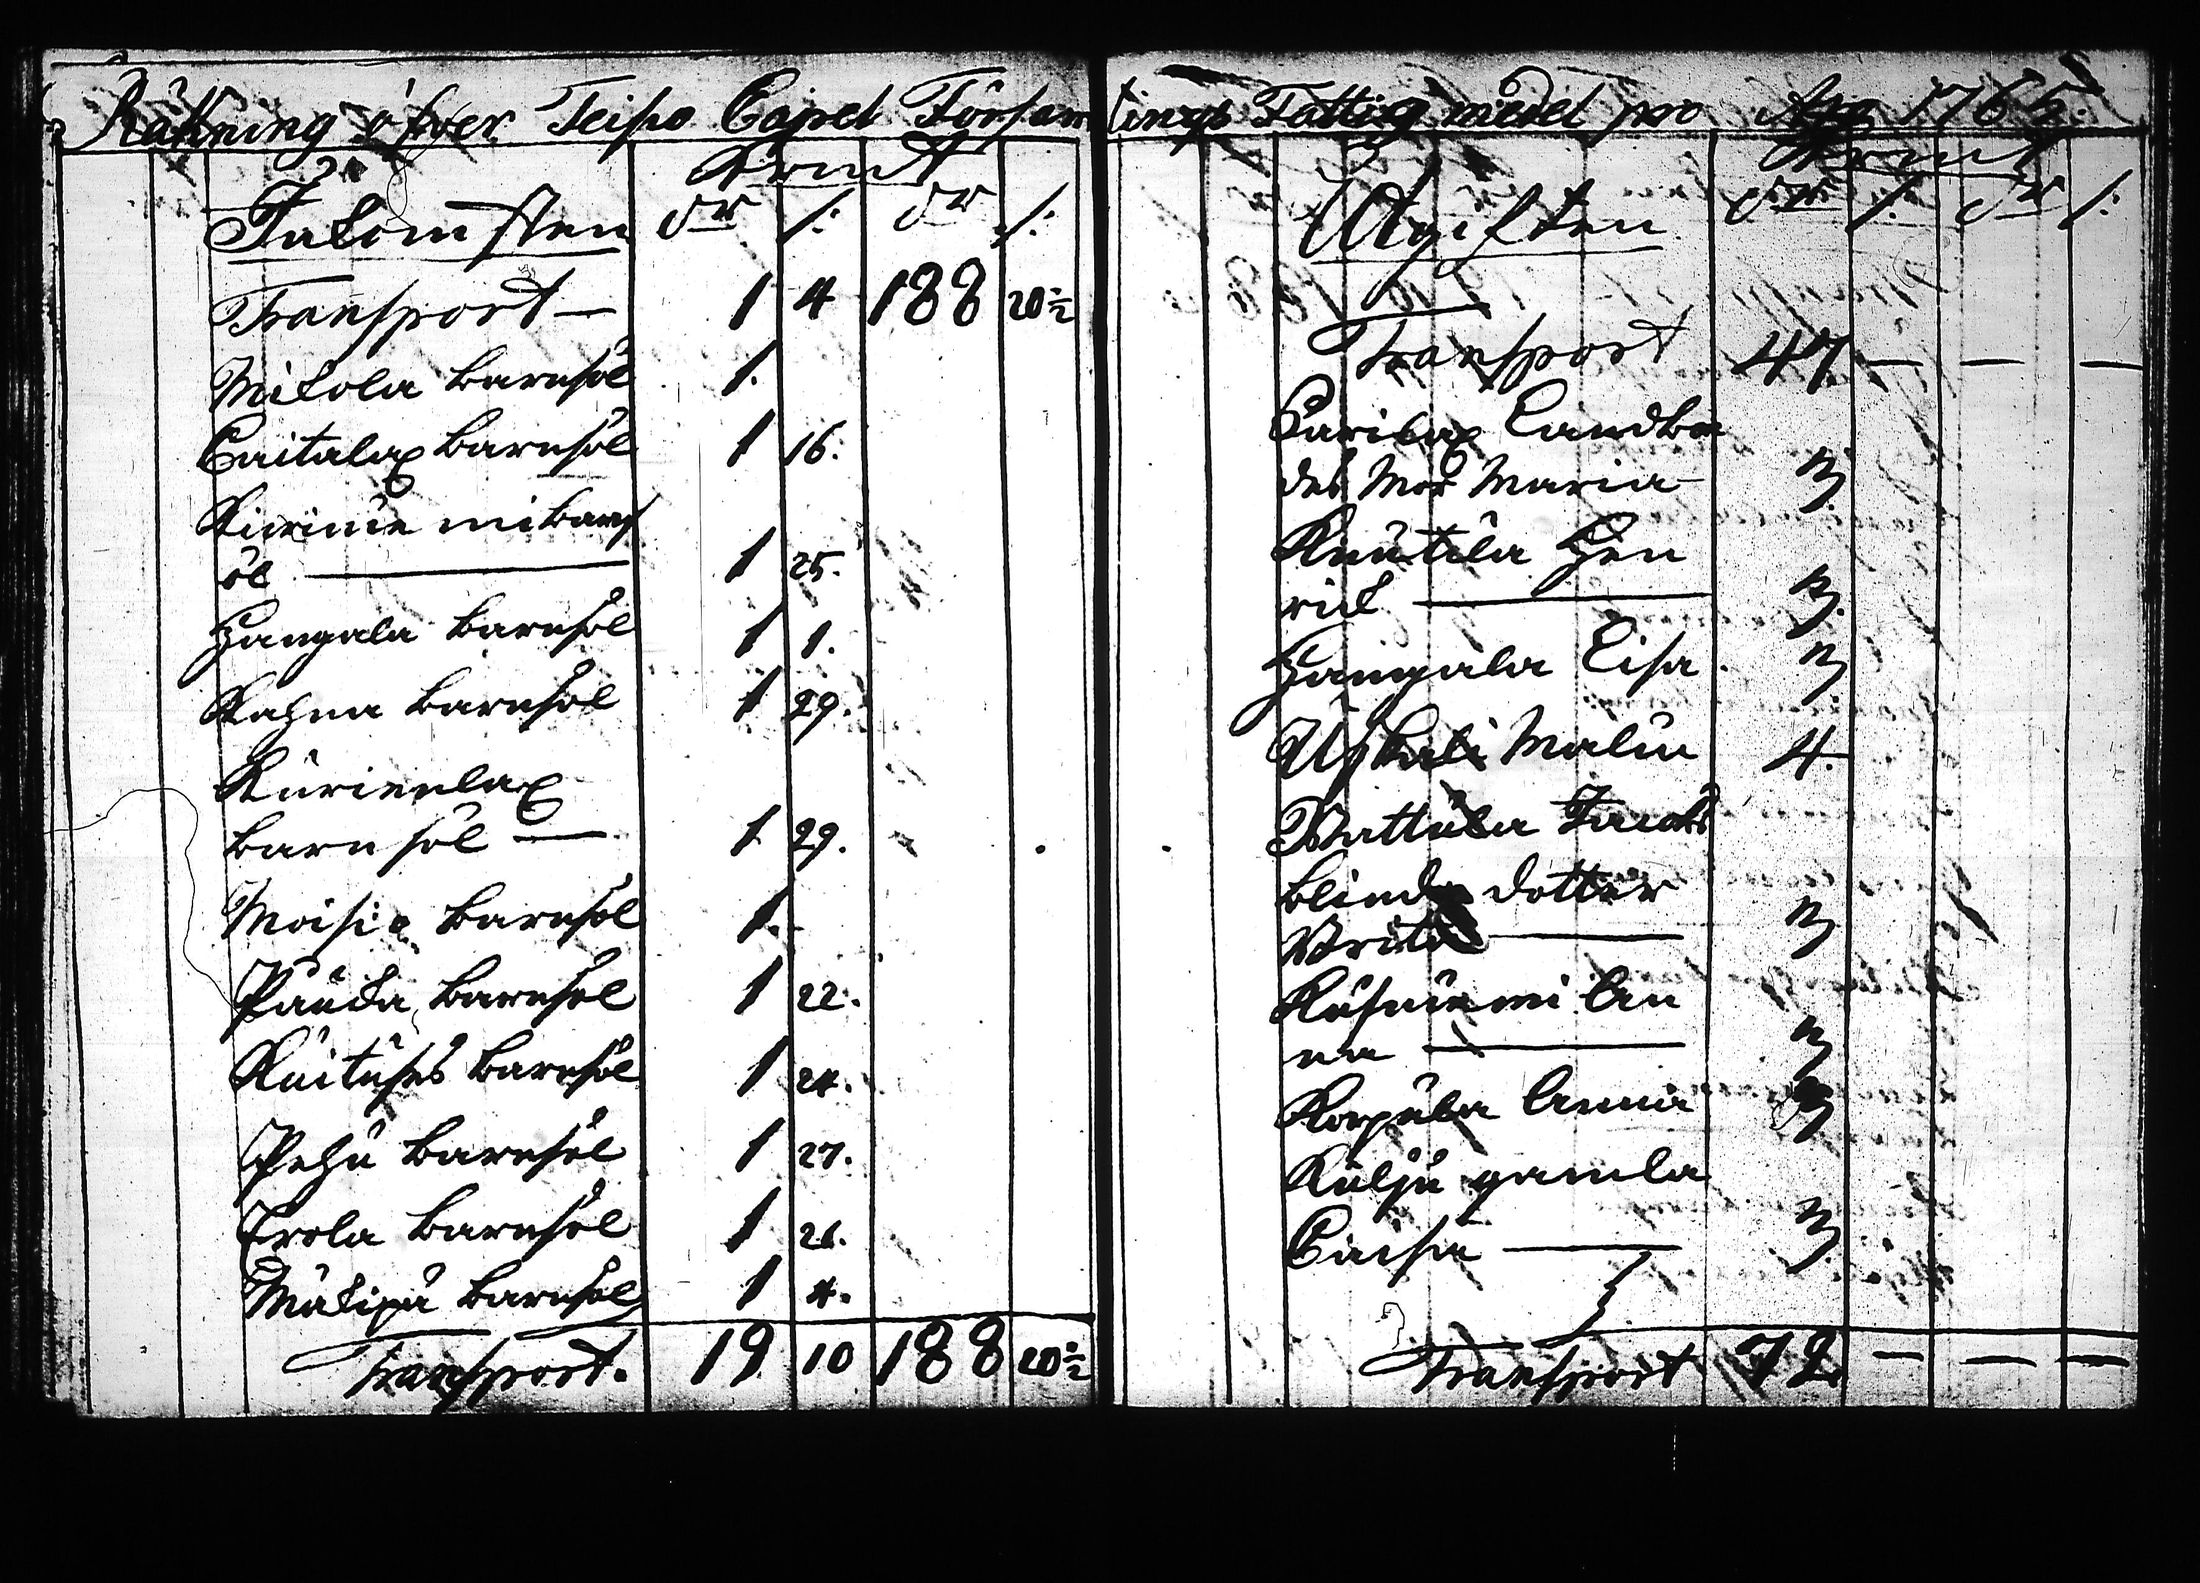 Räkning öfver Teisko Capel Församlings Fattig medel pro Año 1765.
Inkomsten
Kr:mt
dr /: dr /:
Transport — 1 4 188 20½
Mikola barnsöl 1.
Caitalax barnsöl 1 16.
Kiriniemi barns
öl — 1 25.
Hangala barnsöl 1 1.
Kahna barnsöl 1 29.
Kurienlax
barnsöl — 1 29.
Moisio barnsöl 1. -
Pauka barnsöl 1 22.
Kuituses barnsöl 1 24.
Pehu barnsöl 1 27.
Erola barnsöl 1 26.
Mäkipä barnsöl 1 4.
Transport. 19 10 188 20½
Utgiften
Kr:mt
dr /: dr /:
Transport 47 — — —
Landbo
des Mor Maria 3
Knutila Hen
rick — 3.
Hangala Lisa 3
Uskali Malin 4.
Wattula Jacobs
blinda dotter
Brita — 3
Kusniemi An
na — 3
Korpula Anna 3
Kulju gamla
Caisa — 3
Transport 72 — — —